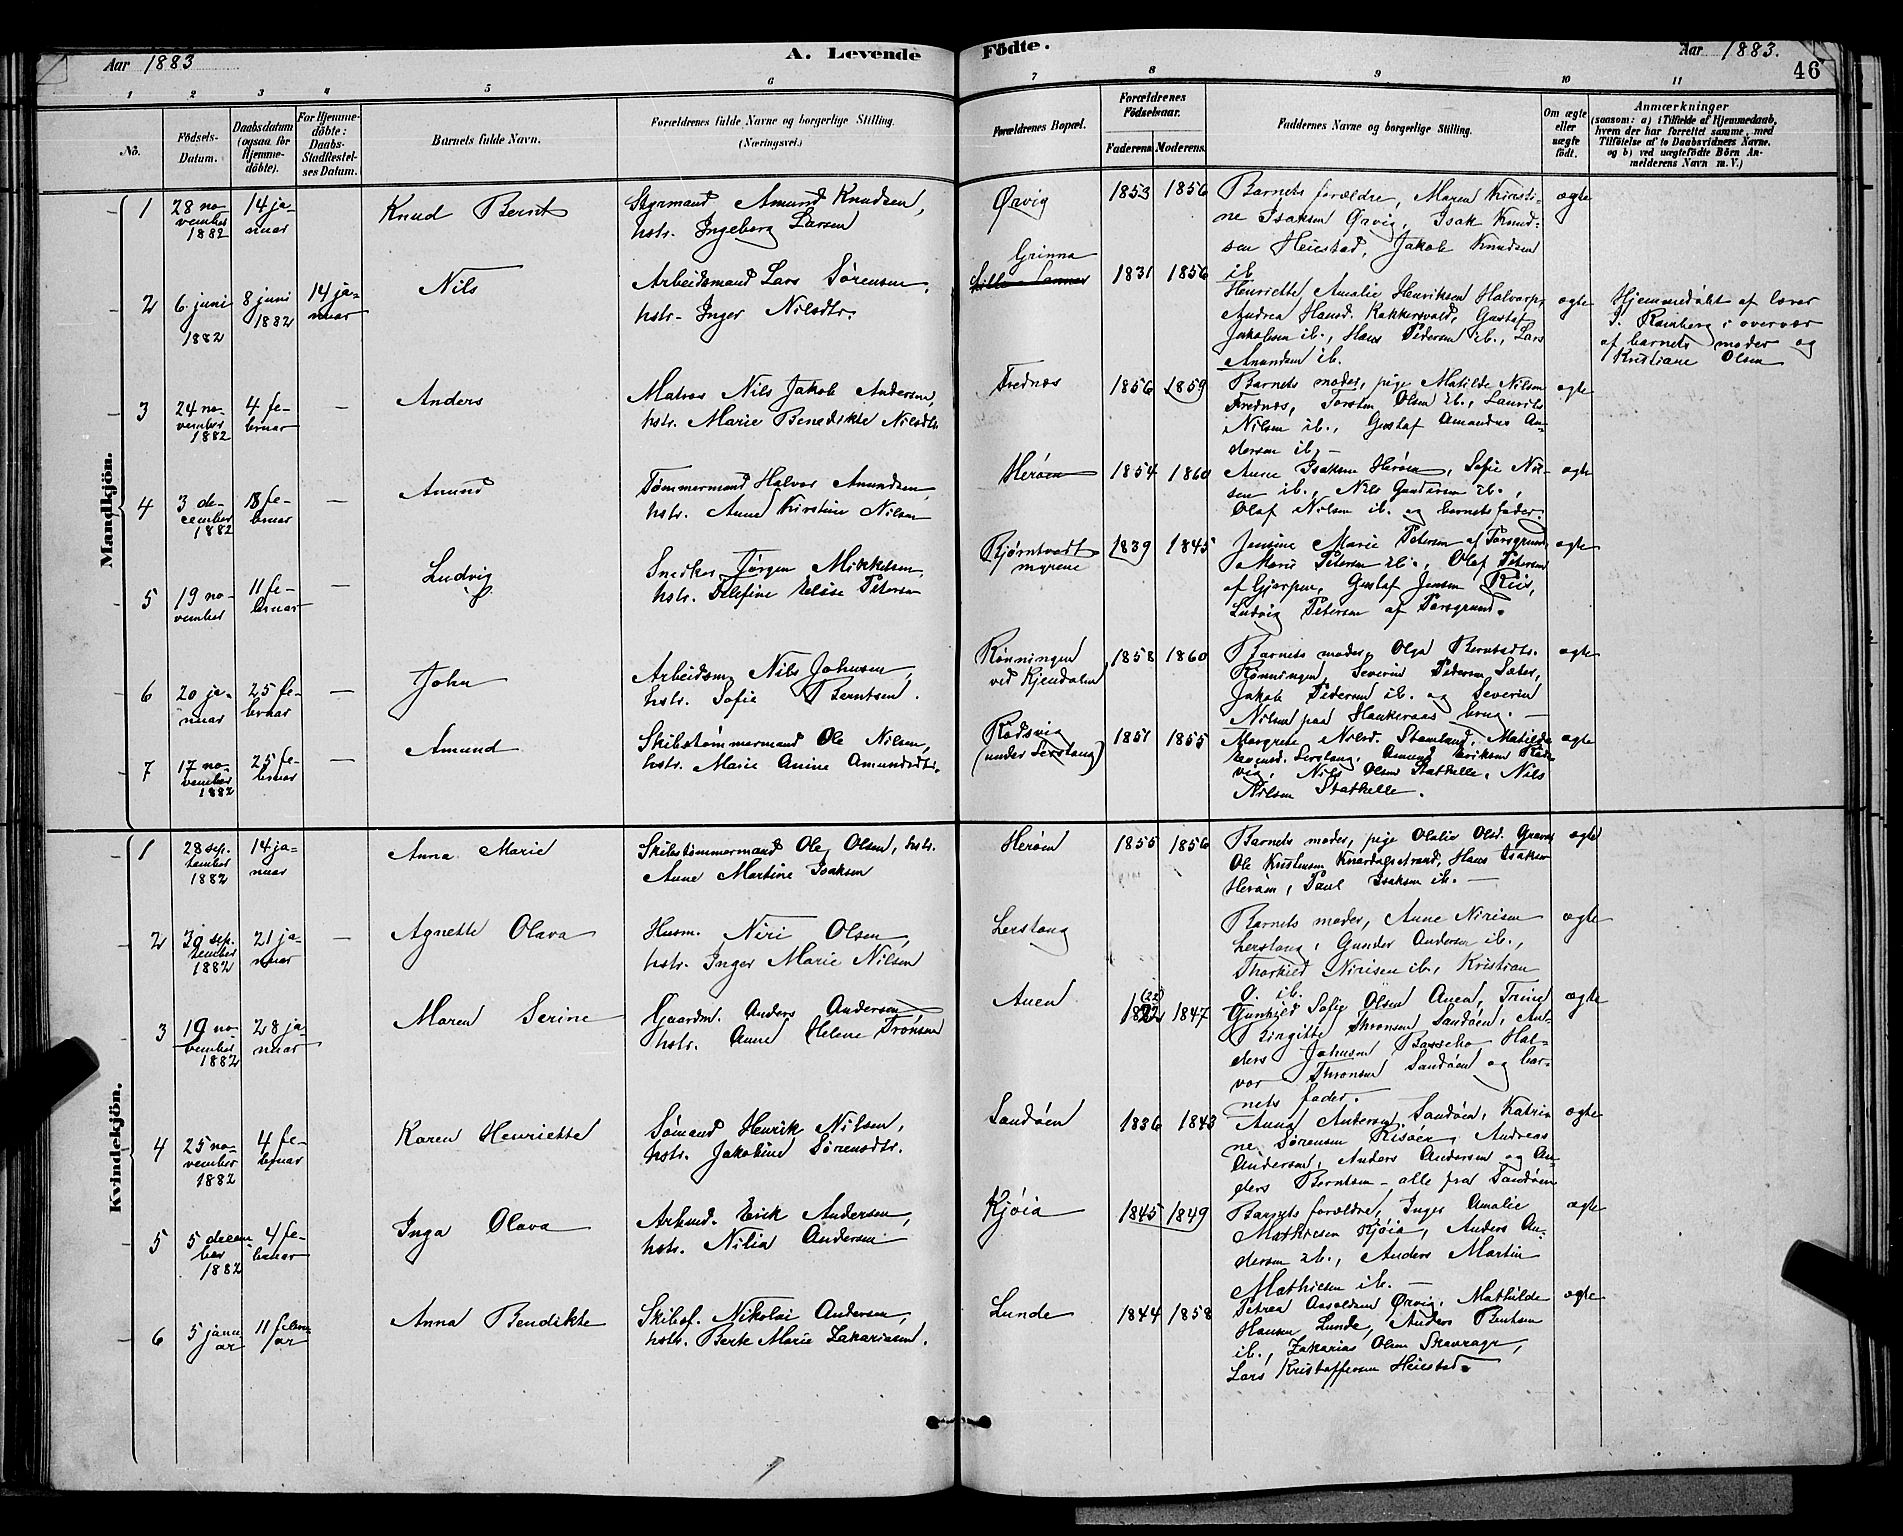 Aar 1883
A. Levende
Födte.
Aar 1883.
46
1 2 3 4 5 6 7 8 9 10 11
Nö.
Födsels-
Datum.
Daabsdatum
(ogsaa for
Hjemme-
döbte).
For Hjemme-
döbte:
Daabs-
Stadfæstel-
ses Datum.
Barnets fulde Navn.
Forældrenes fulde Navne og borgerlige Stilling.
(Næringsvei.)
Forældrenes Bopæl.
Forældrenes
Födselsaar.
Faderens Moderens.
Faddernes Navne og borgerlige Stilling.
Om ægte
eller
uægte
födt.
Anmærkninger
(saasom: a) i Tilfælde af Hjemmedaab,
hvem der har forrettet samme, med
Tilföielse af to Daabsvidners Navne.
og b) ved uægtefödte Börn An-
melderens Navn m. V.)
Mandkjön.
1
28 no-
vember
1882
14 ja-
nuar
Knud Bernt
Styrmand Amund Knudsen,
hstr. Ingeborg Larsen
Ørvig
1853 1856
Barnets forældre, Maren Kirsti-
ne Isaksen Ørvig, Isak Knud-
sen Heiestad, Jakob Knudsen
ib.
ægte
2
6 juni
1882
8 juni
1882
14 ja-
nuar
Nils
Arbeidsmand Lars Sørensen,
hstr. Inger Nilsdtr.
Grinna
1831 1856
Henriette Amalie Henriksen
Andrea Hansd. Gustaf
Jakobsen ib., Hans Pedersen ib., Lars
Amundsen ib.
ægte
Hjemmedøbt af lærer
J. i overvær
af barnets moder og
Kristiane Olsen
3
24 no-
vember
1882
4 fe-
bruar
—
Anders
Matros Nils Jakob Andersen,
hstr. Marie Benedikte Nilsdtr.
Frednæs
1856 1859
Barnets moder, pige Matilde Nilsen
Frednæs, Torsten Olsen ib., Laurits
Nilsen ib., Gustaf Amandus An-
dersen ib. —
ægte
4
3 de-
cember
1882
18 fe-
bruar
—
Anund
Tømmermand Halvor Anundsen,
hstr. Anne Kirstine Nilsen
Herøen
1854 1860
Anne Isaksen Herøen, Sofie Nil-
sen ib., Nils Gundersen ib.,
Olaf Nilsen ib. og barnets fader.
ægte
5
19 no-
vember
11 fe-
bruar
—
Ludvig
Snedker Jørgen Mikkelsen,
hstr. Delefine Elise Petersen
Bjørntvedt
myrene
1839 1845
Jensine Marie Petersen af Porsgrund,
Marie Petersen ib., Olaf Petersen
af Gjerpen, Gustaf Jensen
Ludvig Petersen af Porsgrund.
ægte
6
20 ja-
nuar
25 fe-
bruar
—
John
Arbeidsm. Nils Johnsen,
hstr. Sofie Berntsen.
Rønningen
ved Kjendalen
1858 1860
Barnets moder, Olga Berntsdtr.
Rønningen, Severin Pedersen Sæter,
Jakob Pedersen ib. og Severin
Nilsen paa Haukeraas brug. —
ægte
7
17 no-
vember
1882
25 fe-
bruar
—
Amund
Skibstømmermand Ole Nilsen,
hstr. Marie Anine Amundsdtr.
Rødsvig
(under Lerstang)
1851 1855
Margrete Nilsd. Stamland, Matilde
Lerstang, Amund Eriksen Røds-
vig, Nils Olsen Stathelle, Nils
Nilsen Stathelle.
ægte
Kvindekjön.
1
28 sep-
tember
1882
14 ja-
nuar
Anna Marie
Skibstømmermand Ole Olsen, hstr.
Anne Martine Isaksen
Herøen
1855 1856
Barnets moder, pige Olalie Olsd.
Ole Kristensen Knardalsstrand, Hans Isaksen
Herøen, Paul Isaksen ib. —
ægte
2
30 sep-
tember
1882
21 ja-
nuar
—
Agnette Olava
Husm. Niri Olsen,
hstr. Inger Marie Nilsen
Lerstang
Barnets moder, Anne Nirisen
Lerstang, Gunder Andersen ib.,
Thorkild Nirisen ib., Kristian
O. ib.
ægte
3
19 no-
vember
1882
28 ja-
nuar
Maren Serine
Gaardm. Anders Andersen
hstr. Anne Helene Trønsen
Auen
(22)
1822 1847
Gunhild Sofie Olsen Auen, Trine
Birgitte Thronsen Sandøen, An-
ders Johnsen Hal-
vor Thronsen Sandøen og bar-
nets fader.
ægte
4
25 no-
vember
1882
4 fe-
bruar
Karen Henriette
Sømand Henrik Nilsen,
hstr. Jakobine Sørensdtr.
Sandøen
1836 1843
Anna Andersen Sandøen, Katri-
ne Sørensen Risøen, Andreas
Andersen, Anders Andersen og An-
ders Berntsen – alle fra Sandøen
ægte
5
5 decem-
ber
1882
4 fe-
bruar
Inga Olava
Arbmd. Erik Andersen,
hstr. Nilia Andersen
Kjøia
1845 1849
Barnets forældre, Inger Amalie
Mathisen Kjøia, Anders An-
dersen ib., Anders Martin
Mathisen ib. —
ægte
6
5 janu-
ar
11 febru-
ar
Anna Bendikte
Skibsf. Nikolai Andersen,
hstr. Berte Marie Zakariasen.
Lunde
1844 1858
Petrea Ørvig, Mathilde
Hansen Lunde, Anders Bentsen
ib., Zakarias Olsen Skavrager,
Lars Kristoffersen Heiestad.
ægte